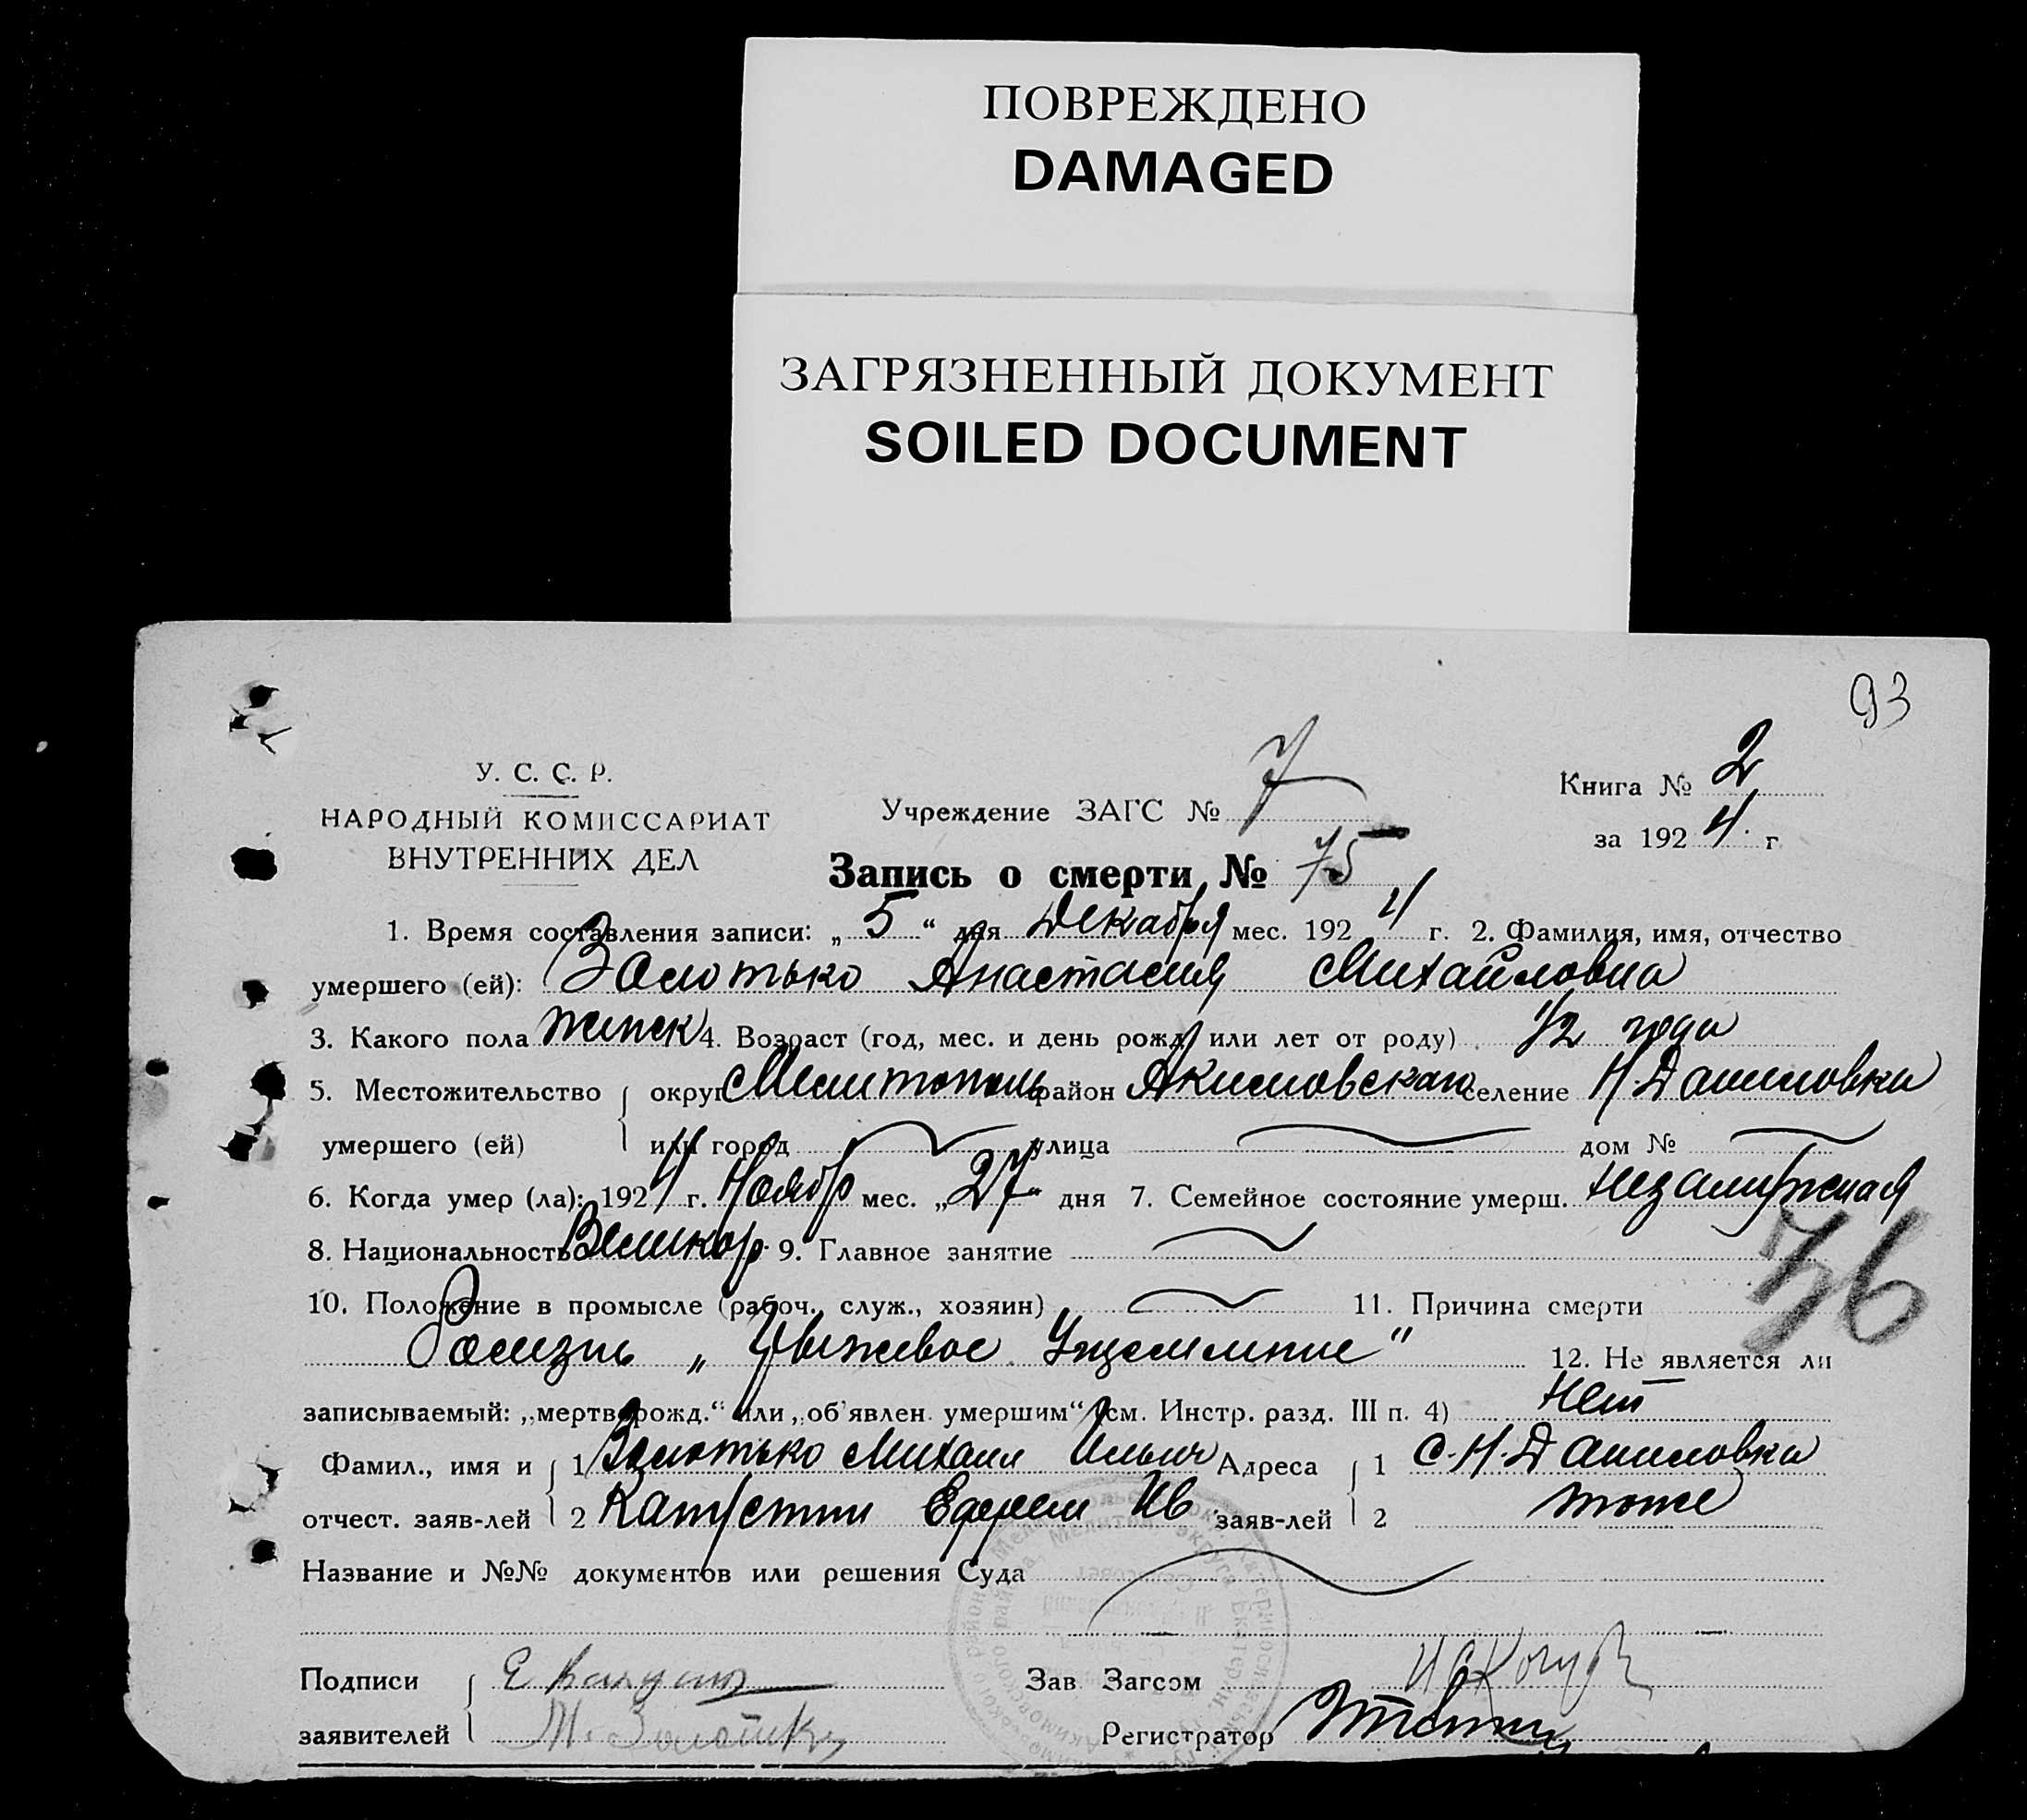 ПОВРЕЖДЕНО
DAMAGED
ЗАГРЯЗНЕННЫЙ ДОКУМЕНТ
SOILED DOCUMENT
93
У. С. С. Р.
НАРОДНЫЙ КОМИССАРИАТ
ВНУТРЕННИХ ДЕЛ
Учреждение ЗАГС № 7
Книга № 2
за 1924 г
Запись о смерти № 75
1. Время составления записи: „5“ дня Декабря мес. 1924 г. 2. Фамилия, имя, отчество
умершего (ей): Золотько Анастасия Михайловна
3. Какого пола женск 4. Возраст (год, мес. и день рожд. или лет от роду) 1/2 года
5. Местожительство округ Мелитополь район Акимовская селение Н. Даниловка
умершего (ей) или город улица дом №
6. Когда умер (ла): 1924 г. Ноябр мес. „27“ дня 7. Семейное состояние умерш. незамужная
8. Национальность Великор. 9. Главное занятие
76
10. Положение в промысле (рабоч., служ., хозяин) 11. Причина смерти
болезнь „Грыжевое Ущемление“ 12. Не является ли
записываемый: „мертворожд.“ или „об'явлен. умершим“ (см. Инстр. разд. III п. 4) нет
Фамил., имя и 1 Золотько Михаил Ильич Адреса 1 с. Н. Даниловка
отчест. заяв-лей 2 Капустин Ефрем Ив. заяв-лей 2 тоже
Название и №№ документов или решения Суда
Подписи Зав Загсом
заявителей М. Золотько Регистратор